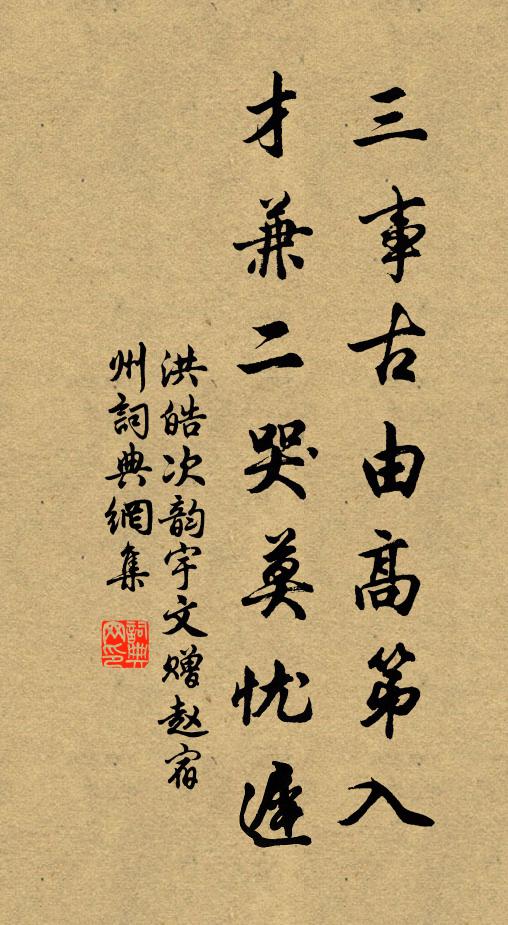 三事古由高第入
才兼二哭莫忧遲
洪皓次韵宇文赠赵宿
州詞典網集
詞典
网印